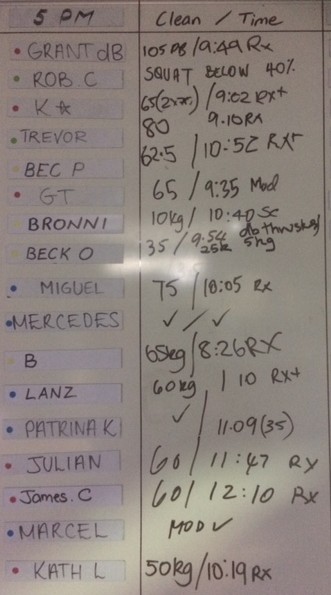 5 PM Clean / Time
GRANT dB 105 PB / 9:49 Rx
ROB. C SQUAT BELOW 40%
K☆ 65(2xx) / 9:02 RX+
TREVOR 80 9.10 RX
BEC P 62.5 / 10:52 RX+
GT 65 / 9:35 Mod
BRONNI 10kg / 10:40 Sc
db thrusters/
5kg
BECK O 35 / 9:54
25k
MIGUEL 75 / 10:05 Rx
MERCEDES ✓ / ✓
B 65kg / 8:26 RX
LANZ 60kg / 10 RX+
PATRINA K ✓ / 11.09 (35)
JULIAN 60 / 11:47 RX
James. C 60 / 12:10 Rx
MARCEL MOD ✓
KATH L 50kg / 10:19 Rx